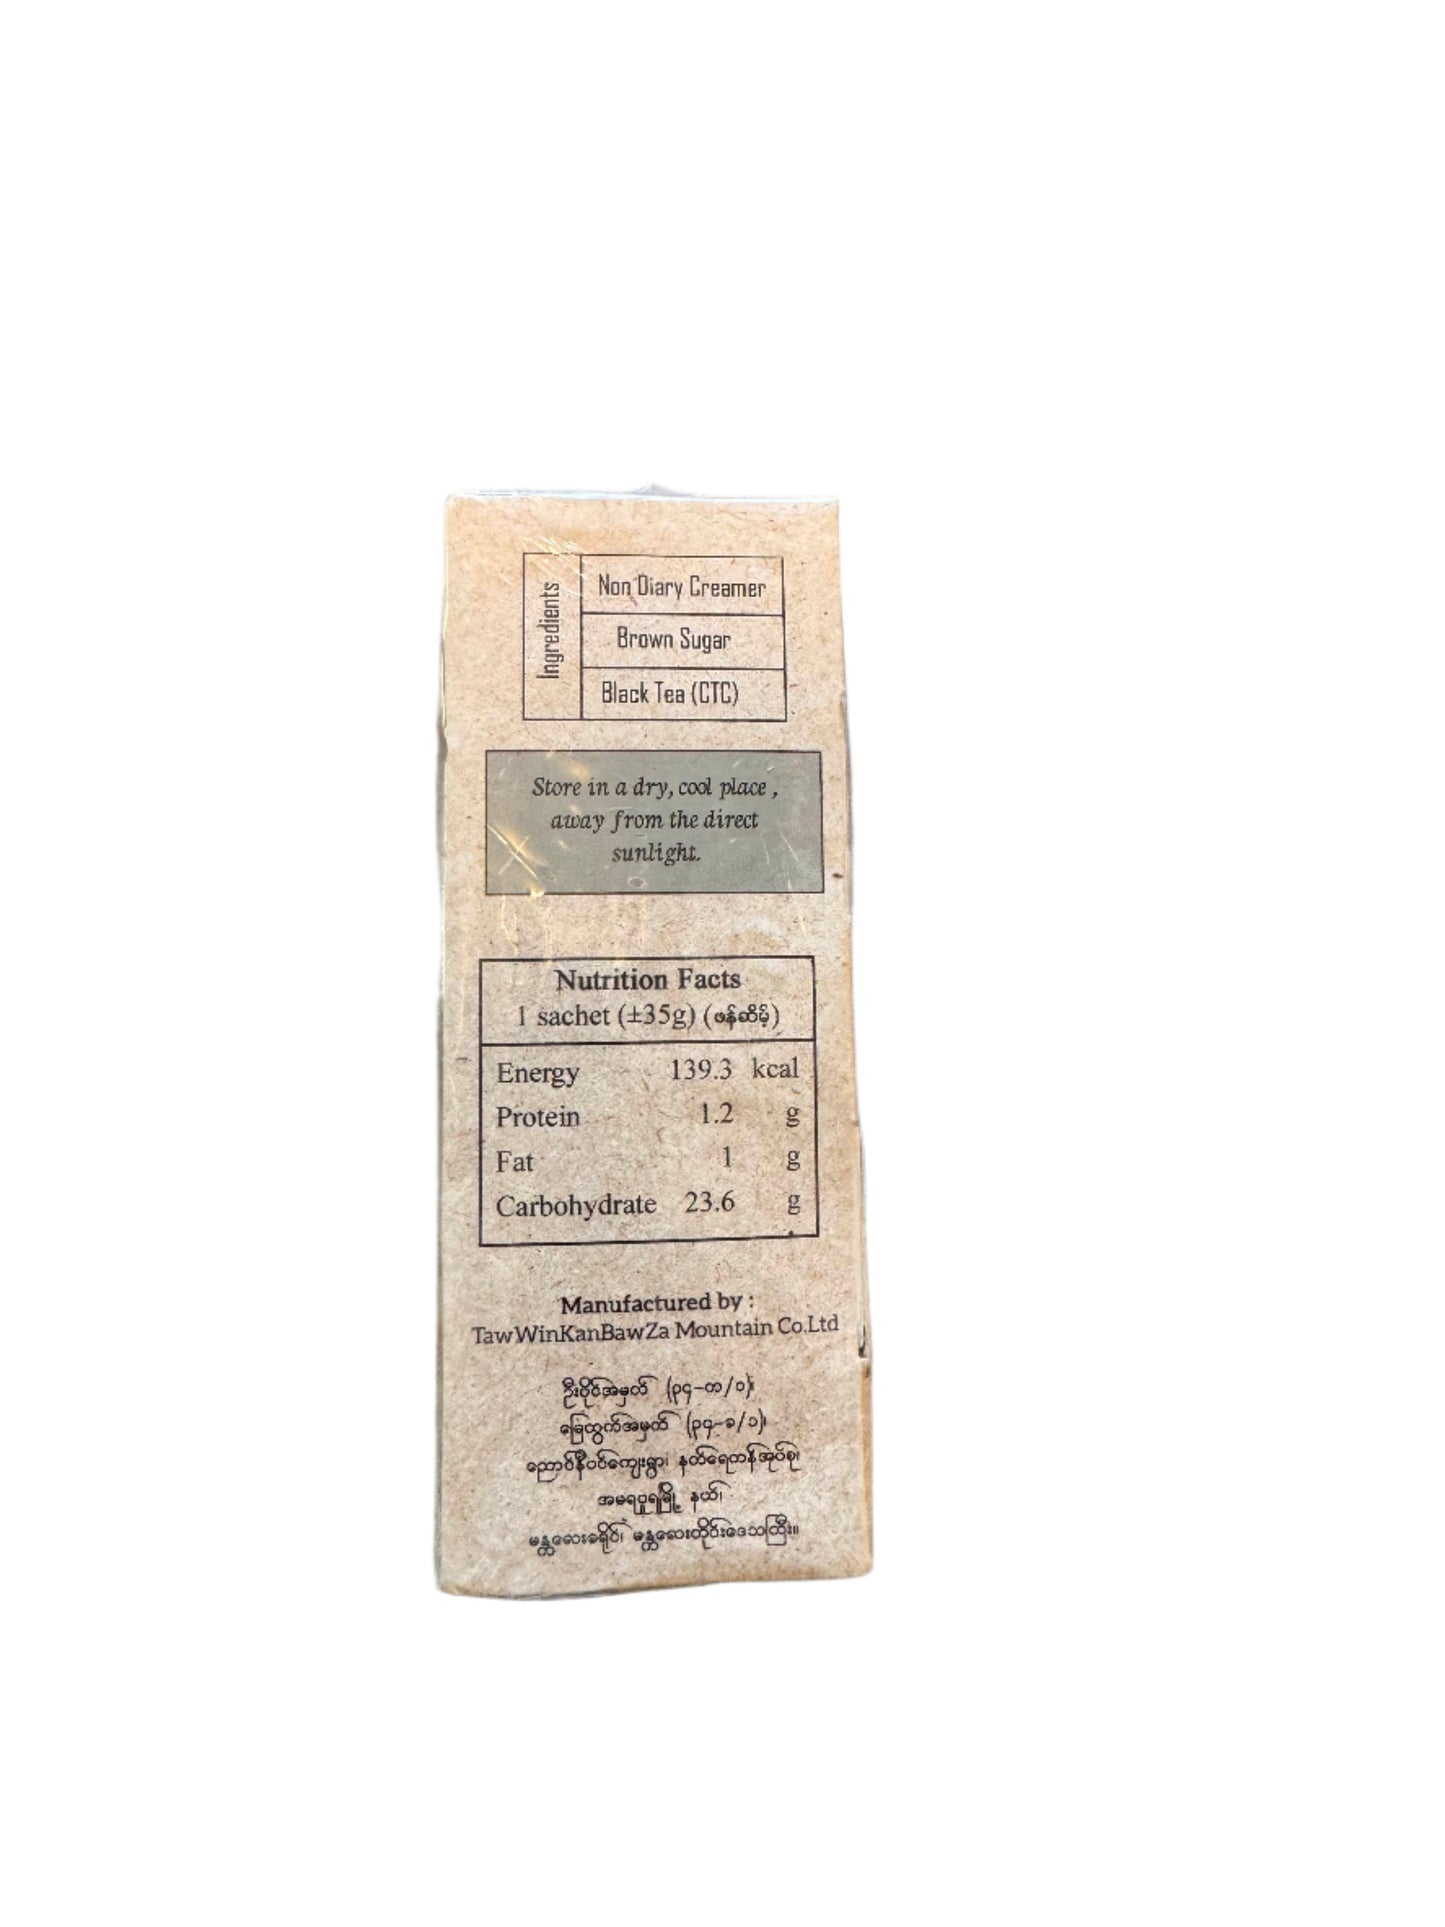 Ingredients
Non Diary Creamer
Brown Sugar
Black Tea (CTC)
Store in a dry, cool place ,
away from the direct
sunlight.
Nutrition Facts
1 sachet (±35g) (ဖန်ဆိမ့်)
Energy 139.3 kcal
Protein 1.2 g
Fat 1 g
Carbohydrate 23.6 g
Manufactured by :
TawWinKanBawZa Mountain Co.Ltd
ဦးပိုင်အမှတ် (၃၄-က/၁)၊
ခြေထွက်အမှတ် (၃၄-ခ/၁)၊
ညောင်နီပင်ကျေးရွာ၊ နတ်ရေကန်အုပ်စု၊
အမရပူရမြို့ နယ်၊
မန္တလေးခရိုင်၊ မန္တလေးတိုင်းဒေသကြီး။